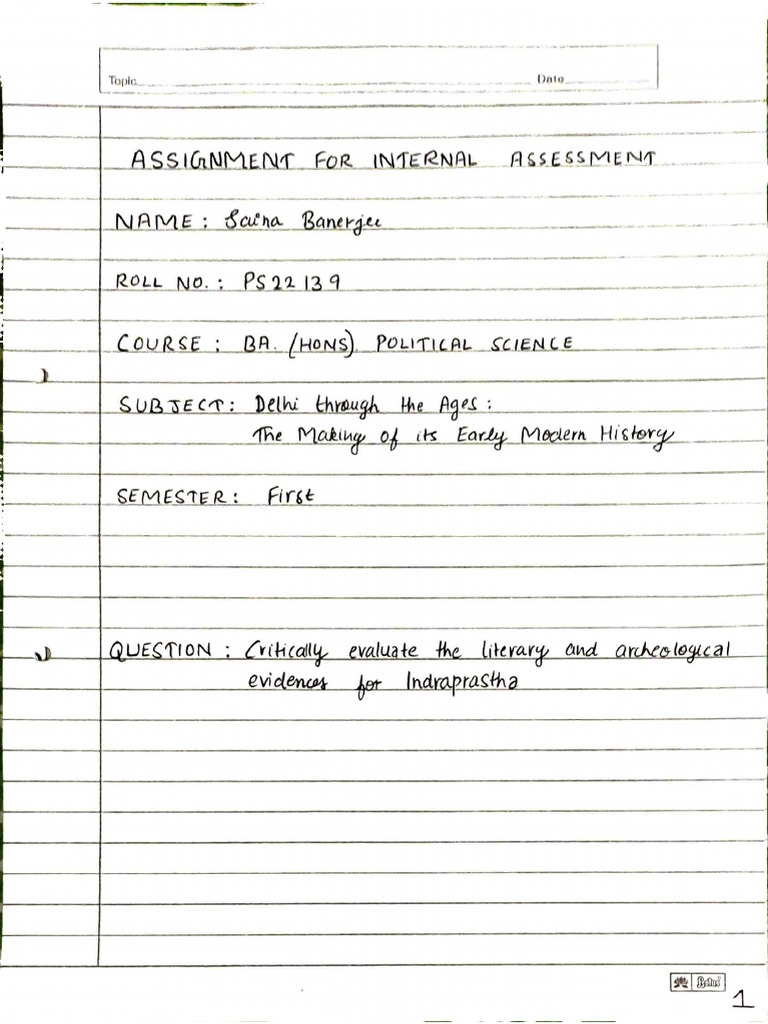 Topic Date
ASSIGNMENT FOR INTERNAL ASSESSMENT
NAME : Saina Banerjee
ROLL NO. : PS22139
COURSE : BA. (HONS) POLITICAL SCIENCE
SUBJECT : Delhi through the Ages :
The Making of its Early Modern History
SEMESTER : First
QUESTION : Critically evaluate the literary and archeological
evidences for Indraprastha
1